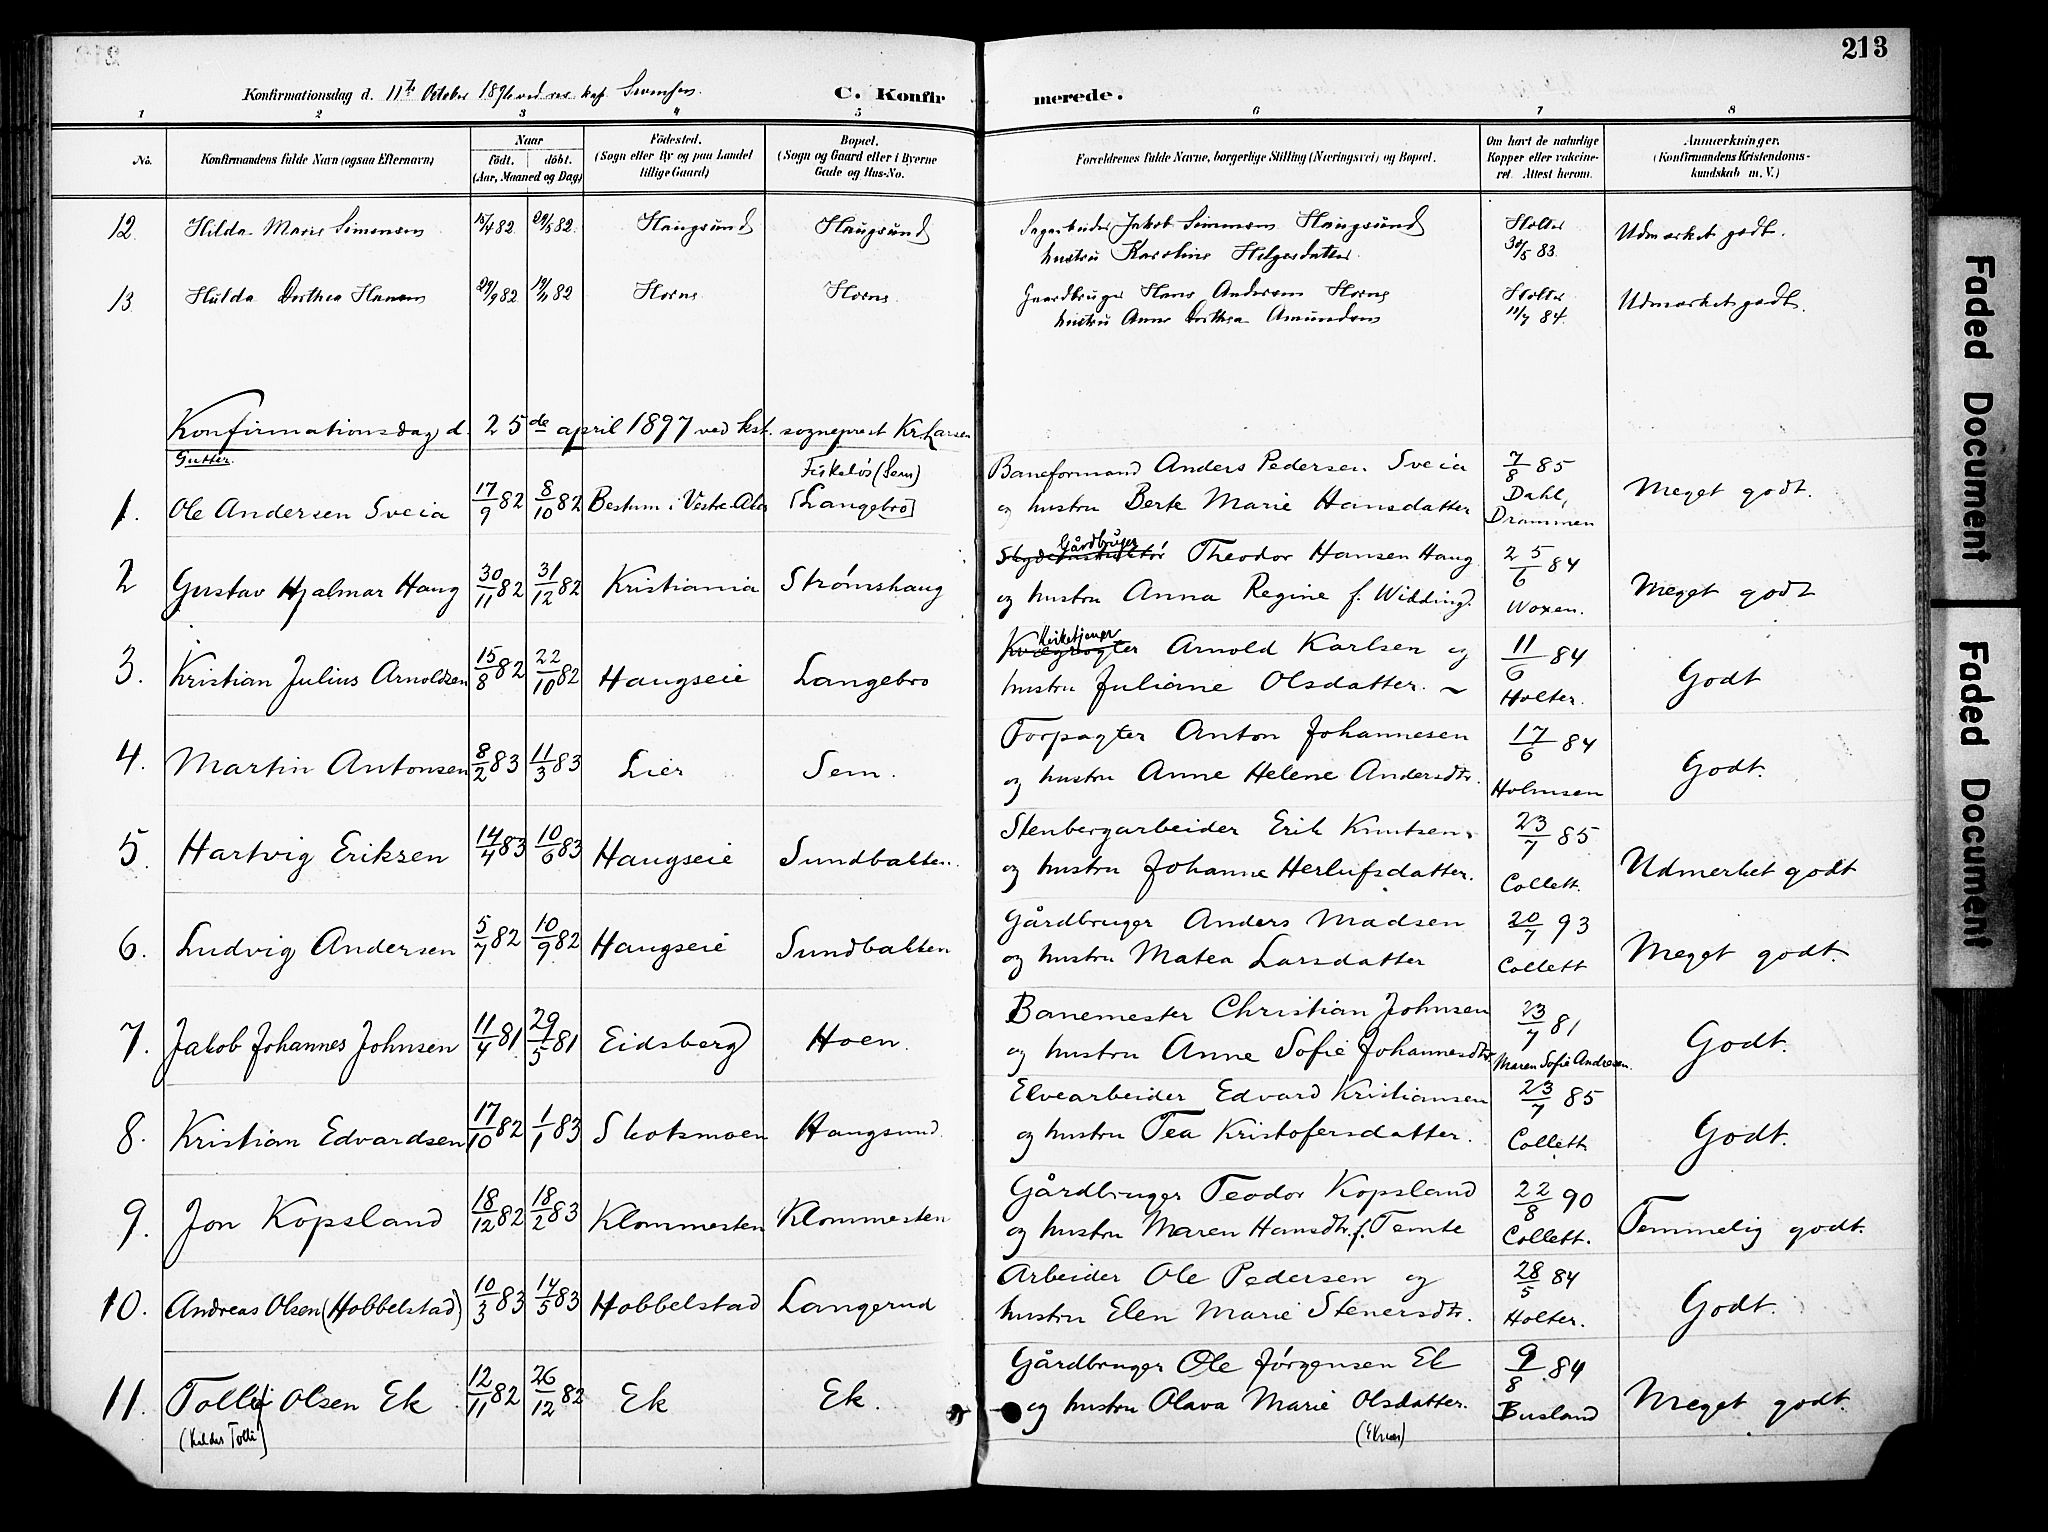 213
Konfirmationsdag d. 11te October 1896 ved res. kap.
C. Konfirmerede.
1 2 3 4 5 6 7 8
No. Konfirmandens fulde Navn (ogsaa Efternavn) Naar födt. döbt. (Aar, Maaned og Dag) Födested. (Sogn eller By og paa Landet tillige Gaard) Bopæl. (Sogn og Gaard eller i Byerne Gade og Hus-No. Forældrenes fulde Navne, borgerlige Stilling (Næringsvei) og Bopæl. Om havt de naturlige Kopper eller vakcineret. Attest herom. Anmærkninger. (Konfirmandens Kristendomskundskab m. V.)
12 Hilda Marie Simensen 15/4 82 29/5 82 Haugsund Haugsund Sagarbeider Jakob Simensen Haugsund Holter Udmærket godt.
hustru Karoline Helgesdatter 30/5 83
13 Hulda Dorthea Hansen 29/9 82 19/11 82 Horne Horne Gaardbruger Hans Andersen Horne Holter Udmærket godt.
hustru Anne Dorthea Amundsen 11/7 84.
Konfirmationsdag d. 25de april 1897 ved kst. sogneprest Kr. Larsen
Gutter.
Fiskeløs (Sem) Baneformand Anders Pedersen Sveia 7/8 85
1. Ole Andersen Sveia 17/9 82 8/10 82 Bestum i Vestre Aker [Langebro] og hustru Berte Marie Hansdatter Dahl, Drammen Meget godt.
Gårdbruger Theodor Hansen Haug 25/6 84
2 Gustav Hjalmar Haug 30/11 82 31/12 82 Kristiania Strømshaug og hustru Anna Regine f. Widding. Woxen. Meget godt
Kirketjener Kvægrøgter Arnold Karlsen og 11/6 84
3. Kristian Julius Arnoldsen 15/8 82 22/10 82 Haugseie Langebro hustru Juliane Olsdatter. Holter. Godt
Forpagter Anton Johannesen 17/6 84
4. Martin Antonsen 8/2 83 11/3 83 Lier Sem. og hustru Anne Helene Andersdtr. Holmsen Godt.
Stenbergarbeider Erik Knutsen 23/7 85
5. Hartvig Eriksen 14/4 83 10/6 83 Haugseie Sundbakken. og hustru Johanne Herlufsdatter. Collett. Udmerket godt
Gårdbruger Anders Madsen 20/7 93
6. Ludvig Andersen 5/7 82 10/9 82 Haugseie Sundbakken og hustru Matea Larsdatter Collett Meget godt.
Banemester Christian Johnsen 23/7 81
7. Jakob Johannes Johnsen 11/4 81 29/5 81 Eidsberg Hoen. og hustru Anne Sofie Johannesdtr. Maren Sofie Andresen. Godt.
Elvearbeider Edvard Kristiansen 23/7 85
8. Kristian Edvardsen 17/10 82 1/1 83 Skotsmoen Haugsund. og hustru Tea Kristofersdatter. Collett Godt.
Gårdbruger Teodor Kopsland 22/8 90
9. Jon Kopsland 18/12 82 18/2 83 Klommesten Klommesten og hustru Maren Hansdtr. f. Temte Collett. Temmelig godt.
Arbeider Ole Pedersen og 28/5 84
10. Andreas Olsen (Hobbelstad) 10/3 83 14/5 83 Hobbelstad Langerud hustru Elen Marie Stenersdtr. Holter. Godt.
Gårdbruger Ole Jörgensen Ek 9/8 84
11. Tollef Olsen Ek 12/11 82 26/12 82 Ek Ek. og hustru Olava Marie Olsdatter. Busland Meget godt.
(kaldes Tolli)
Faded Document
Faded Document